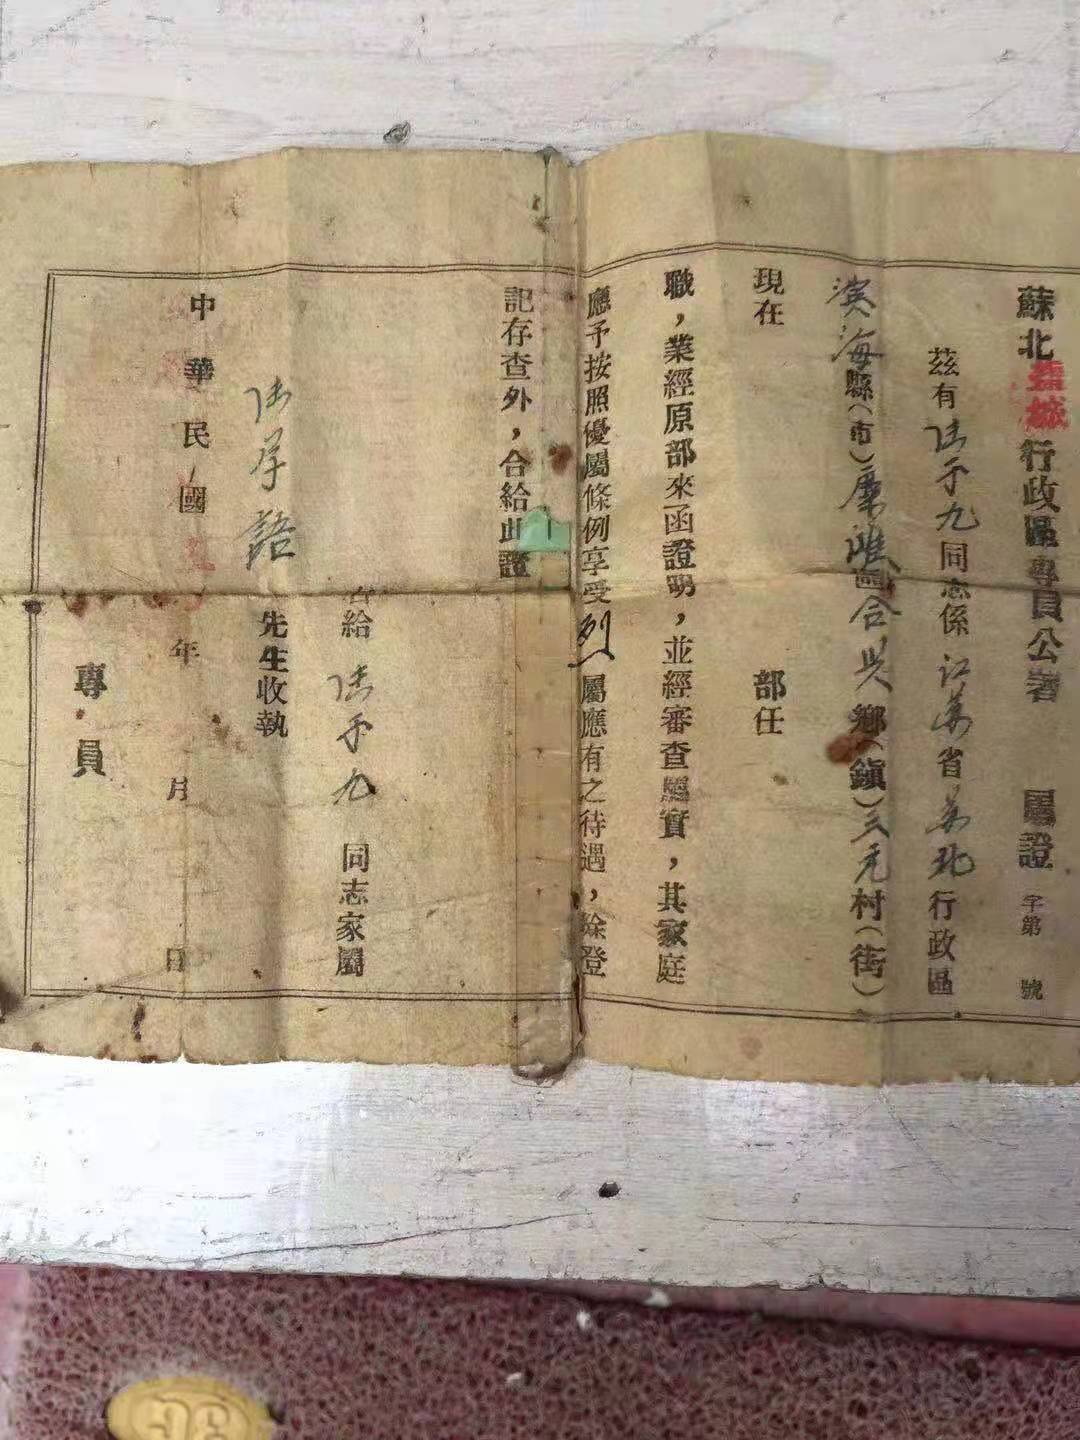 蘇北鹽城行政區專員公署 屬證 字第 號
茲有 九同志係 江蘇省蘇北行政區
濱海縣(市) 合 鄉(鎮)三元村(街)
現在 部任
職，業經原部來函證明，並經審查屬實，其家庭
應予按照優屬條例享受烈屬應有之待遇，除登
記存查外，合給此證
右給 九 同志家屬
先生收執
中華民國 年 月 日
專員